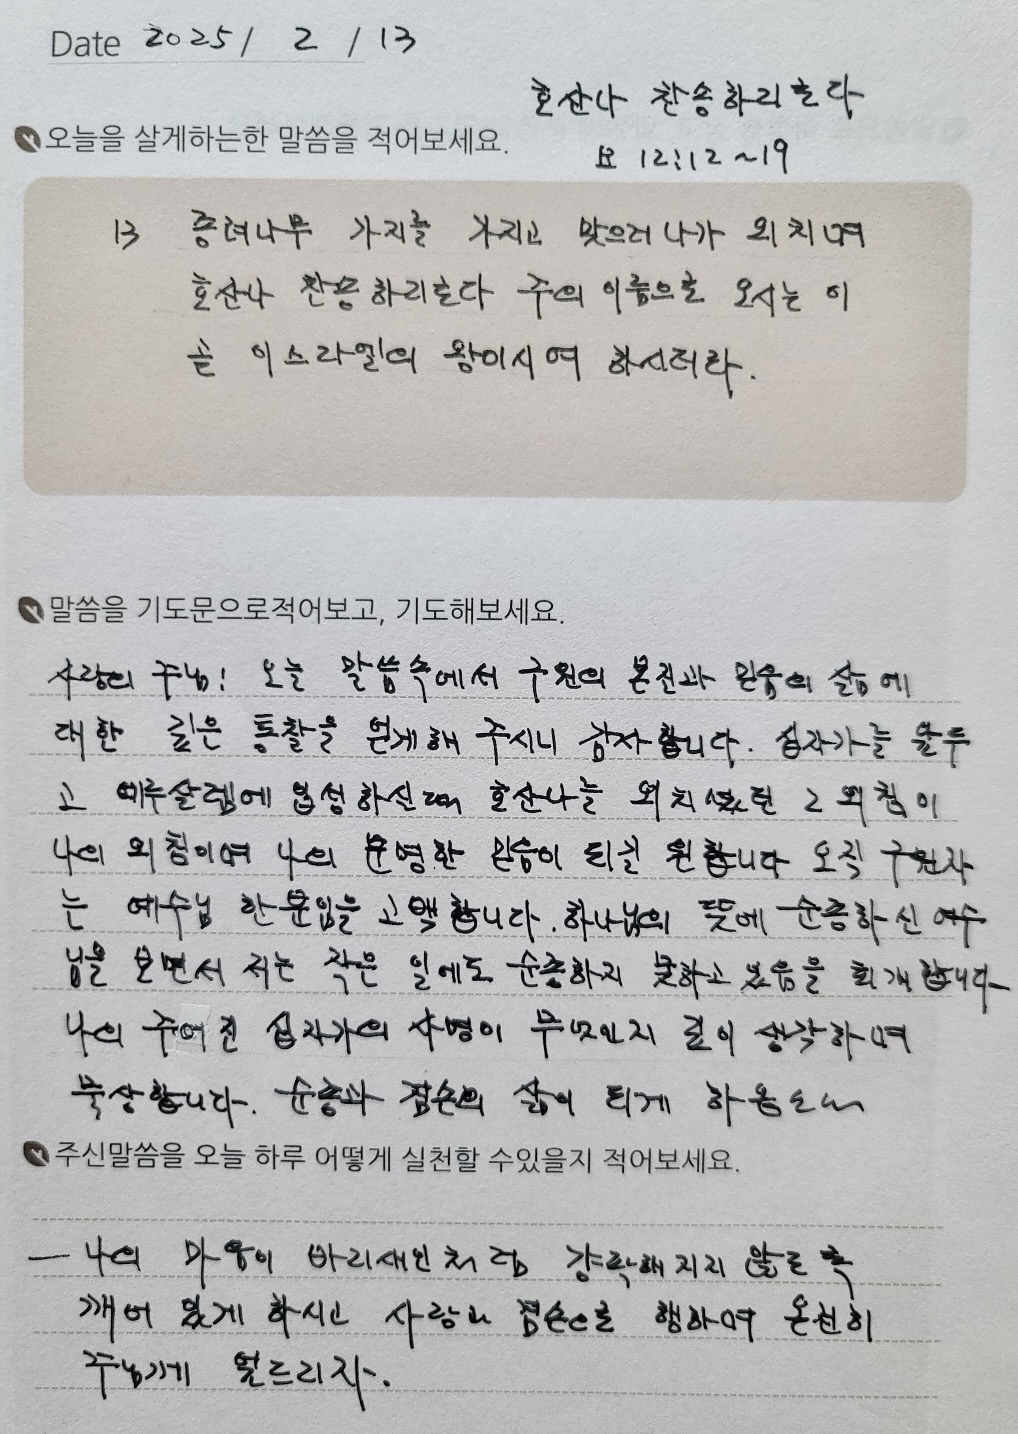 Date 2025 / 2 / 13
호산나 찬송하리로다
오늘을 살게하는한 말씀을 적어보세요.
요 12:12 ~19
13 종려나무 가지를 가지고 맞으러 나가 외치며
호산나 찬송하리로다 주의 이름으로 오시는 이
곧 이스라엘의 왕이시여 하시더라.
말씀을 기도문으로적어보고, 기도해보세요.
사랑의 주님! 오늘 말씀속에서 구원의 본진과 믿음의 삶에
대한 깊은 통찰을 얻게해 주시니 감사합니다. 십자가를 앞두
고 예루살렘에 입성하신 때 호산나를 외치셨던 그 외침이
나의 외침이며 나의 분명한 믿음이 되길 원합니다 오직 구원자
는 예수님 한분임을 고백합니다. 하나님의 뜻에 순종하신 예수
님을 보면서 저는 작은 일에도 순종하지 못하고 있음을 회개합니다
나의 주어진 십자가의 사명이 무엇인지 깊이 생각하며
묵상합니다. 순종과 겸손의 삶이 되게 하옵소서
주신말씀을 오늘 하루 어떻게 실천할 수있을지 적어보세요.
— 나의 마음이 바리새인처럼 강팍해지지 않도록
깨어 있게 하시고 사랑과 겸손으로 행하며 온전히
주님께 엎드리자.